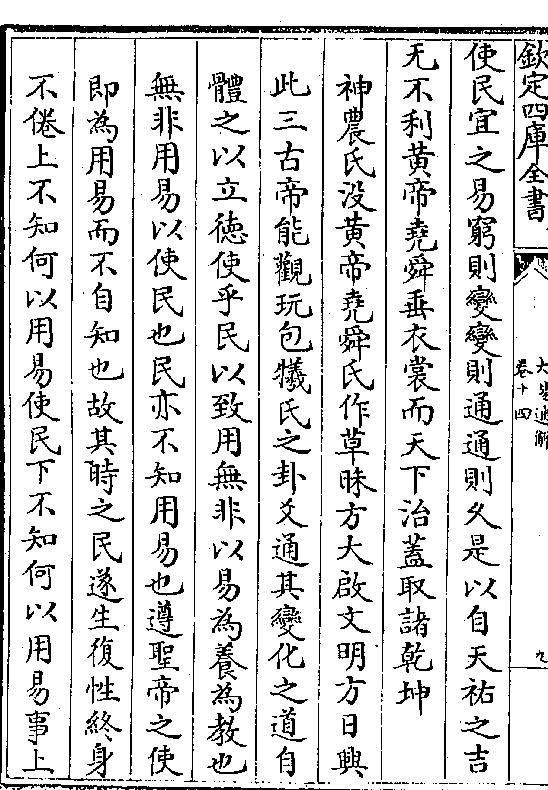 欽定四庫全書
大易通解
卷十四
九
使民宜之易窮則變變則通通則久是以自天祐之吉
无不利黃帝堯舜垂衣裳而天下治蓋取諸乾坤
神農氏没黃帝堯舜氏作草昧方大啟文明方日興
此三古帝能觀玩包犧氏之卦爻通其變化之道自
體之以立德使乎民以致用無非以易為養為教也
無非用易以使民也民亦不知用易也遵聖帝之使
即為用易而不自知也故其時之民遂生復性終身
不倦上不知何以用易使民下不知何以用易事上